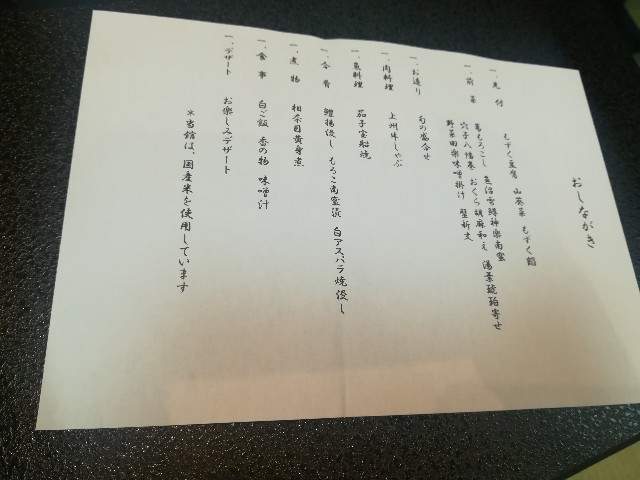 おしながき
一、先付 もずく豆腐 山葵菜 もずく餡
一、前菜 葛もろこし 魚沼雪鱒神楽南蛮
穴子八幡巻 おくら胡麻和え 湯葉琥珀寄せ
野菜田楽味噌掛け
一、お造り 旬の盛合せ
一、肉料理 上州牛しゃぶ
一、魚料理 茄子宝船焼
一、合肴 鱧揚浸し もろこ南蛮漬 白アスパラ焼浸し
一、煮物 相奈目黄身煮
一、食事 白ご飯 香の物 味噌汁
一、デザート お楽しみデザート
※当館は、国産米を使用しています